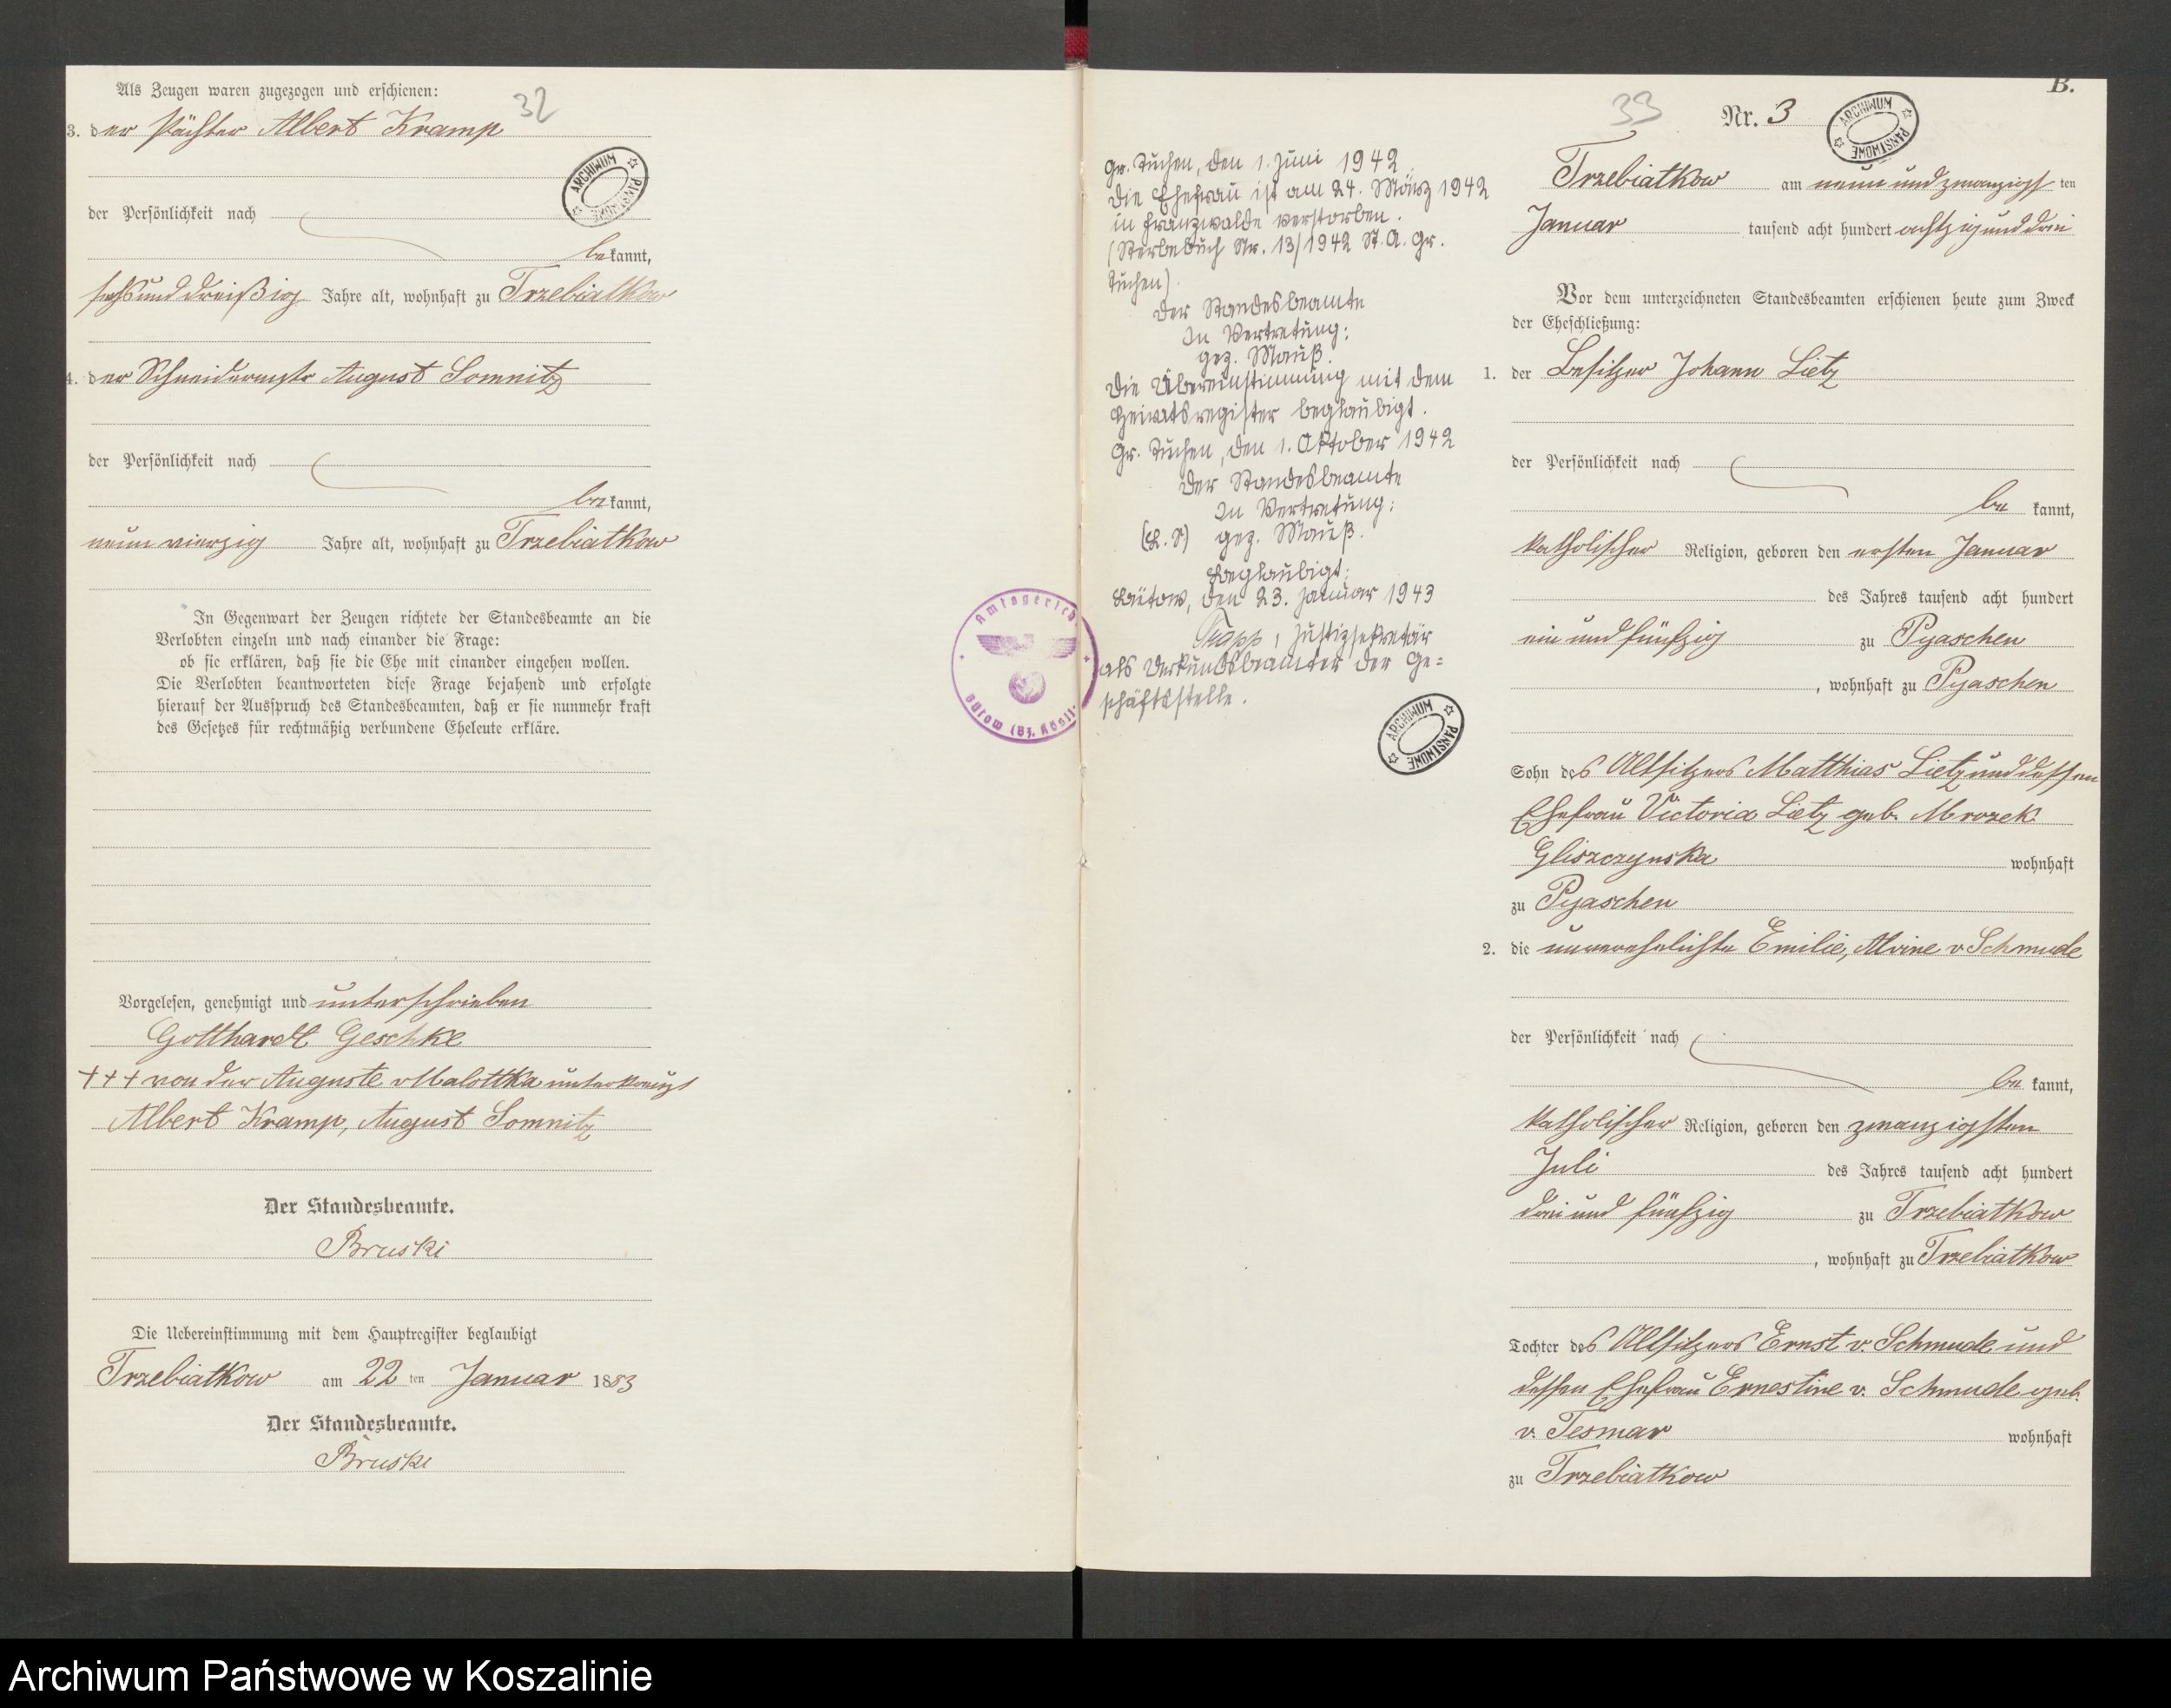 32
Als Zeugen waren zugezogen und erschienen:
3. der Pächter Albert Kramp
der Persönlichkeit nach
bekannt,
sechsunddreißig Jahre alt, wohnhaft zu Trzebiatkow
4. der Schneidermstr August Somnitz
der Persönlichkeit nach
bekannt,
neun vierzig Jahre alt, wohnhaft zu Trzebiatkow
In Gegenwart der Zeugen richtete der Standesbeamte an die
Verlobten einzeln und nach einander die Frage:
ob sie erklären, daß sie die Ehe mit einander eingehen wollen.
Die Verlobten beantworteten diese Frage bejahend und erfolgte
hierauf der Ausspruch des Standesbeamten, daß er sie nunmehr kraft
des Gesetzes für rechtmäßig verbundene Eheleute erkläre.
Vorgelesen, genehmigt und unterschrieben
Gotthardt Geschke
+++ von der Auguste v Malottka unterkreuzt
Albert Kramp, August Somnitz
Der Standesbeamte.
Bruski
Die Uebereinstimmung mit dem Hauptregister beglaubigt
Trzebiatkow am 22 ten Januar 1883
Der Standesbeamte.
Bruski
ARCHIWUM PAŃSTWOWE
Amtsgericht
Bütow (Bz. Kösl.
Gr. Tuchen, den 1. Juni 1942
Die Ehefrau ist am 24. März 1942
in Franzwalde verstorben.
(Sterbebuch Nr. 13/1942 St. A. Gr.
Tuchen).
Der Standesbeamte
In Vertretung:
gez. Mauß.
Die Übereinstimmung mit dem
Heiratsregister beglaubigt.
Gr. Tuchen, den 1. Oktober 1942
Der Standesbeamte
In Vertretung:
(L. S) gez. Mauß.
Beglaubigt:
Bütow, den 23. Januar 1943
Justizsekretär
als Urkundsbeamter der Ge=
schäftsstelle.
ARCHIWUM PAŃSTWOWE
B.
33
Nr. 3
ARCHIWUM PAŃSTWOWE
Trzebiatkow am neun und zwanzigst ten
Januar tausend acht hundert achtzig und drei
Vor dem unterzeichneten Standesbeamten erschienen heute zum Zweck
der Eheschließung:
1. der Besitzer Johann Lietz
der Persönlichkeit nach
be kannt,
katholischer Religion, geboren den ersten Januar
des Jahres tausend acht hundert
ein und fünfzig zu Pyaschen
, wohnhaft zu Pyaschen
Sohn des Altsitzers Matthias Lietz und dessen
Ehefrau Victoria Lietz geb. Mrozek
Gliszczynska wohnhaft
zu Pyaschen
2. die unverehelichte Emilie, Alvine v Schmude
der Persönlichkeit nach
be kannt,
katholischer Religion, geboren den zwanzigsten
Juli des Jahres tausend acht hundert
drei und fünfzig zu Trzebiatkow
, wohnhaft zu Trzebiatkow
Tochter des Altsitzers Ernst v. Schmude und
dessen Ehefrau Ernestine v. Schmude geb.
v. Tesmar wohnhaft
zu Trzebiatkow
Archiwum Państwowe w Koszalinie